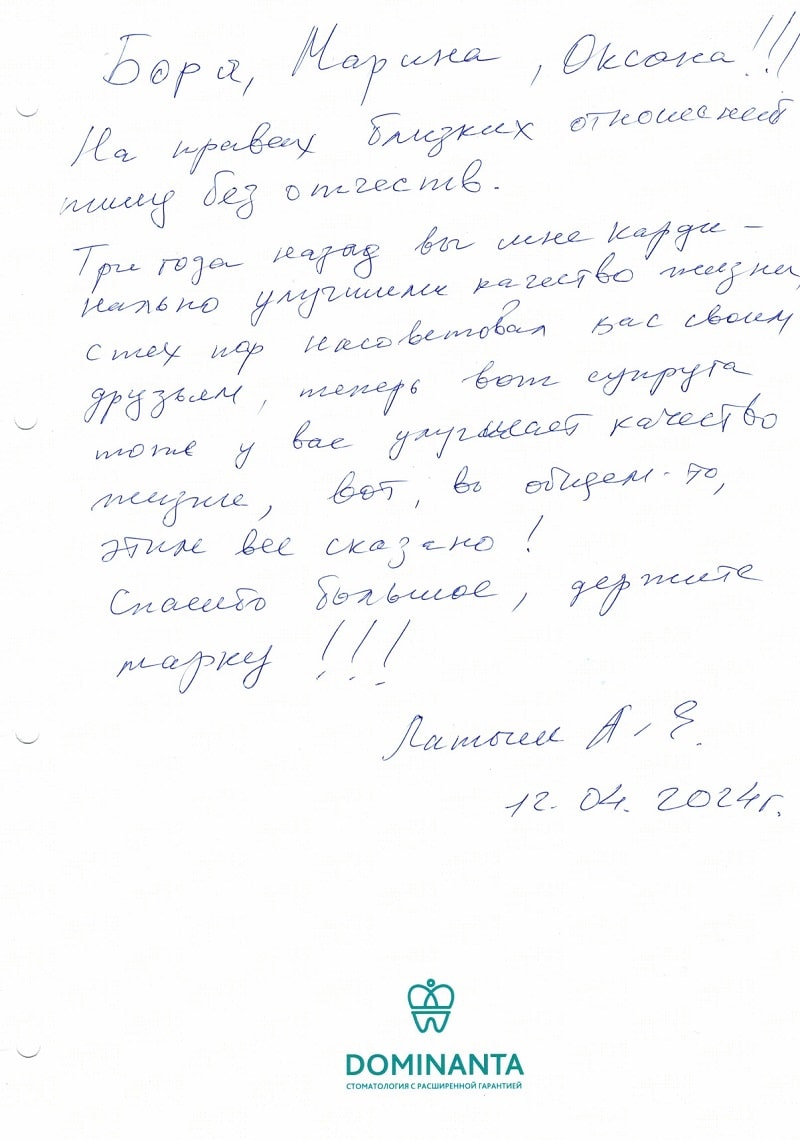 Боря, Марина, Оксана!!!
На правах близких отношений
пишу без отчеств.
Три года назад вы мне карди-
нально улучшили качество жизни,
с тех пор насоветовал вас своим
друзьям, теперь вот супруга
тоже у вас улучшает качество
жизни, вот, в общем-то,
этим все сказано!
Спасибо большое, держите
марку!!!
А. Е.
12.04.2024г.
DOMINANTA
СТОМАТОЛОГИЯ С РАСШИРЕННОЙ ГАРАНТИЕЙ